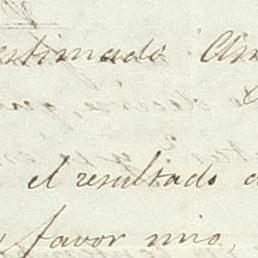 estimado Am
el resultado
favor mio,